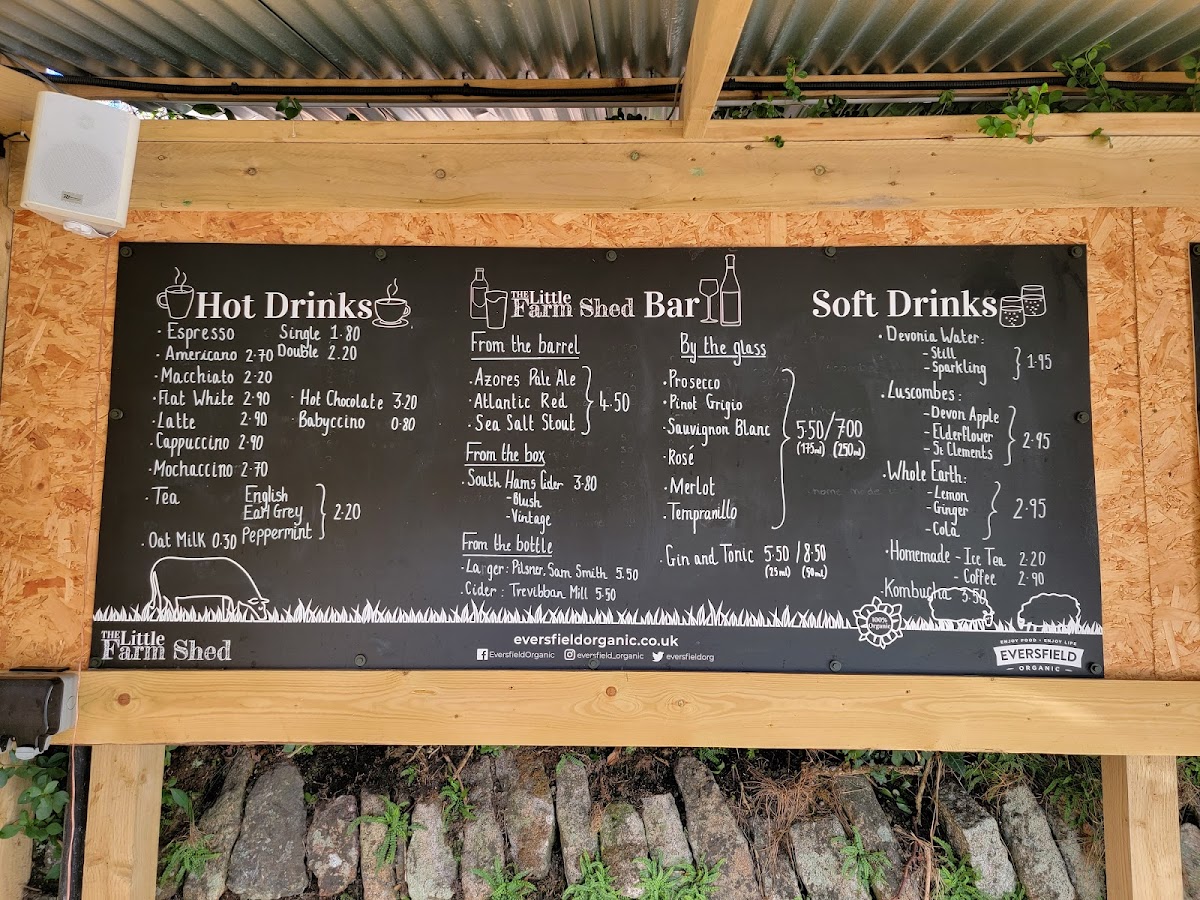 Hot Drinks
· Espresso Single 1·80
· Americano 2·70 Double 2·20
· Macchiato 2·20
· Flat White 2·90
· Latte 2·90
· Cappuccino 2·90
· Mochaccino 2·70
· Hot Chocolate 3·20
· Babyccino 0·80
· Tea English
Earl Grey
Peppermint
2·20
· Oat Milk 0·30
THE Little
Farm Shed Bar
From the barrel
· Azores Pale Ale
· Atlantic Red
· Sea Salt Stout
4.50
From the box
· South Hams Cider 3·80
- Blush
- Vintage
From the bottle
· Larger: Pilsner, Sam Smith 5.50
· Cider: Trevibban Mill 5·50
By the glass
· Prosecco
· Pinot Grigio
· Sauvignon Blanc
· Rosé
· Merlot
· Tempranillo
5.50/7.00
(175ml) (250ml)
· Gin and Tonic 5·50 / 8·50
(25ml) (50ml)
Soft Drinks
· Devonia Water:
- Still
- Sparkling
1·95
· Luscombes:
- Devon Apple
- Elderflower
- St Clements
2·95
· Whole Earth:
- Lemon
- Ginger
- Cola
2·95
· Homemade - Ice Tea 2·20
- Coffee 2·90
· Kombucha 3·50
100%
Organic
THE Little
Farm Shed
eversfieldorganic.co.uk
EversfieldOrganic eversfield_organic eversfieldorg
ENJOY FOOD • ENJOY LIFE
EVERSFIELD
- ORGANIC -